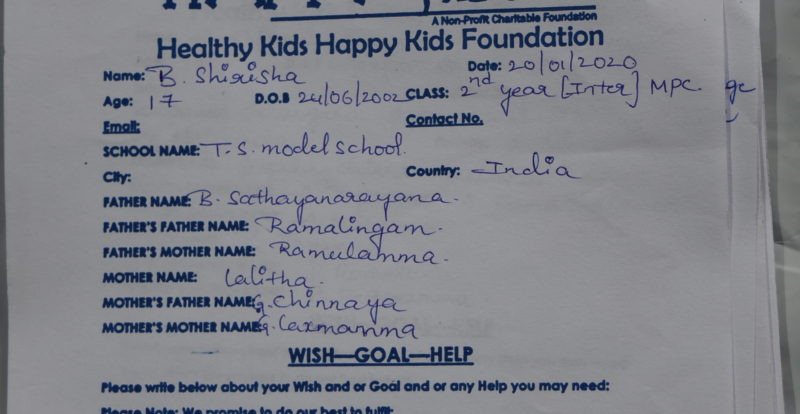 A Non-Profit Charitable Foundation
Healthy Kids Happy Kids Foundation
Date: 20/01/2020
Name: B. Shirisha
Age: 17 D.O.B 24/06/2002 CLASS: 2nd year [Inter] MPC.
Email: Contact No.
SCHOOL NAME: T.S. model school.
City: Country: India
FATHER NAME: B. Sathayanarayana.
FATHER'S FATHER NAME: Ramalingam.
FATHER'S MOTHER NAME: Ramulamma.
MOTHER NAME: Lalitha.
MOTHER'S FATHER NAME: G. Chinnaya
MOTHER'S MOTHER NAME: G. Laxmamma
WISH—GOAL—HELP
Please write below about your Wish and or Goal and or any Help you may need:
Please Note: We promise to do our best to fulfil: